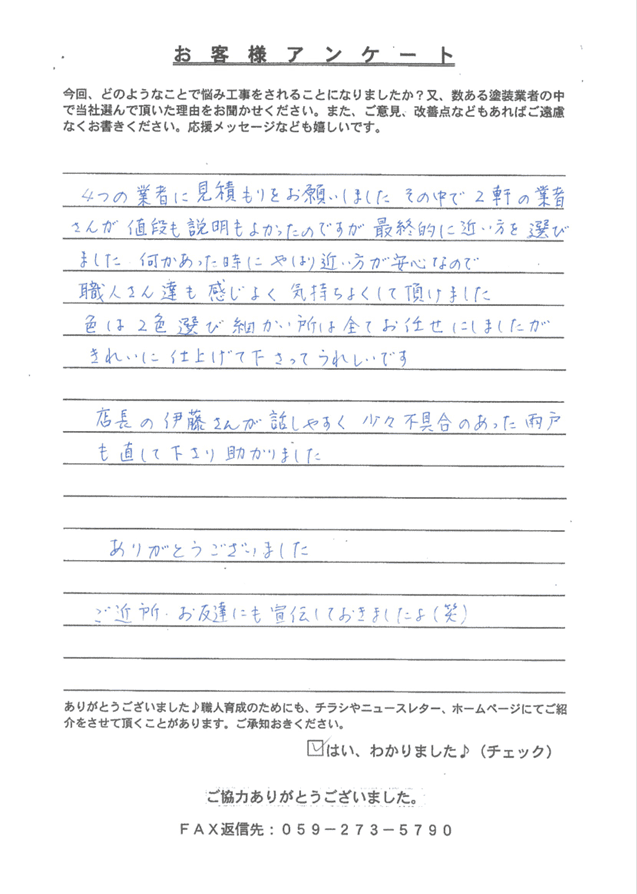 お客様アンケート
今回、どのようなことで悩み工事をされることになりましたか？又、数ある塗装業者の中
で当社選んで頂いた理由をお聞かせください。また、ご意見、改善点などもあればご遠慮
なくお書きください。応援メッセージなども嬉しいです。
4つの業者に見積もりをお願いしました その中で2軒の業者
さんが値段も説明もよかったのですが最終的に近い方を選び
ました 何かあった時にやはり近い方が安心なので
職人さん達も感じよく気持ちよくして頂けました
色は2色選び細かい所は全てお任せにしましたが
きれいに仕上げて下さってうれしいです
店長の伊藤さんが話しやすく少々不具合のあった雨戸
も直して下さり助かりました
ありがとうございました
ご近所・お友達にも宣伝しておきましたよ(笑)
ありがとうございました♪職人育成のためにも、チラシやニュースレター、ホームページにてご紹
介をさせて頂くことがあります。ご承知おきください。
☑はい、わかりました♪（チェック）
ご協力ありがとうございました。
FAX返信先：059－273－5790